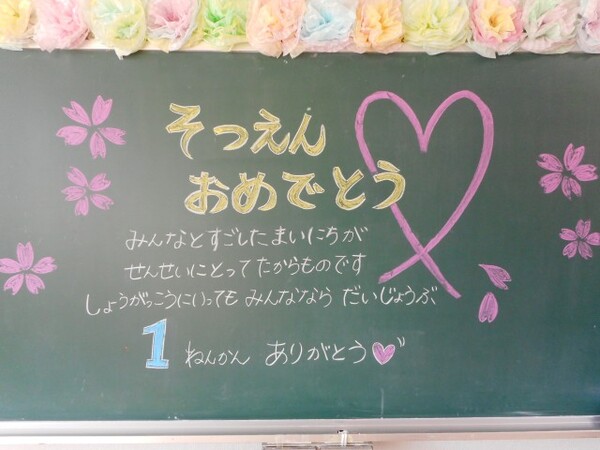 そつえん
おめでとう
みんなとすごしたまいにちが
せんせいにとってたからものです
しょうがっこうにいっても みんななら だいじょうぶ
1ねんかん ありがとう